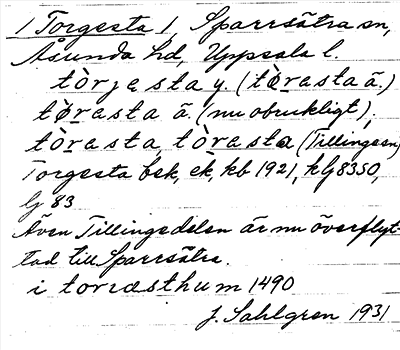 / Torgesta /, Sparrsätra sn,
Åsunda hd, Uppsala l.
tòrjesta y. (tòrasta ä.)
tòrasta ä. (nu obrukligt),
tòrasta, tòrasta (Tillingesn)
Torgesta bsk, ek, kb 1921, hlj 8350,
lj 83
Även Tillingedelen är nu överflyt-
tad till Sparrsätra.
i toræsthum 1490
J. Sahlgren 1931